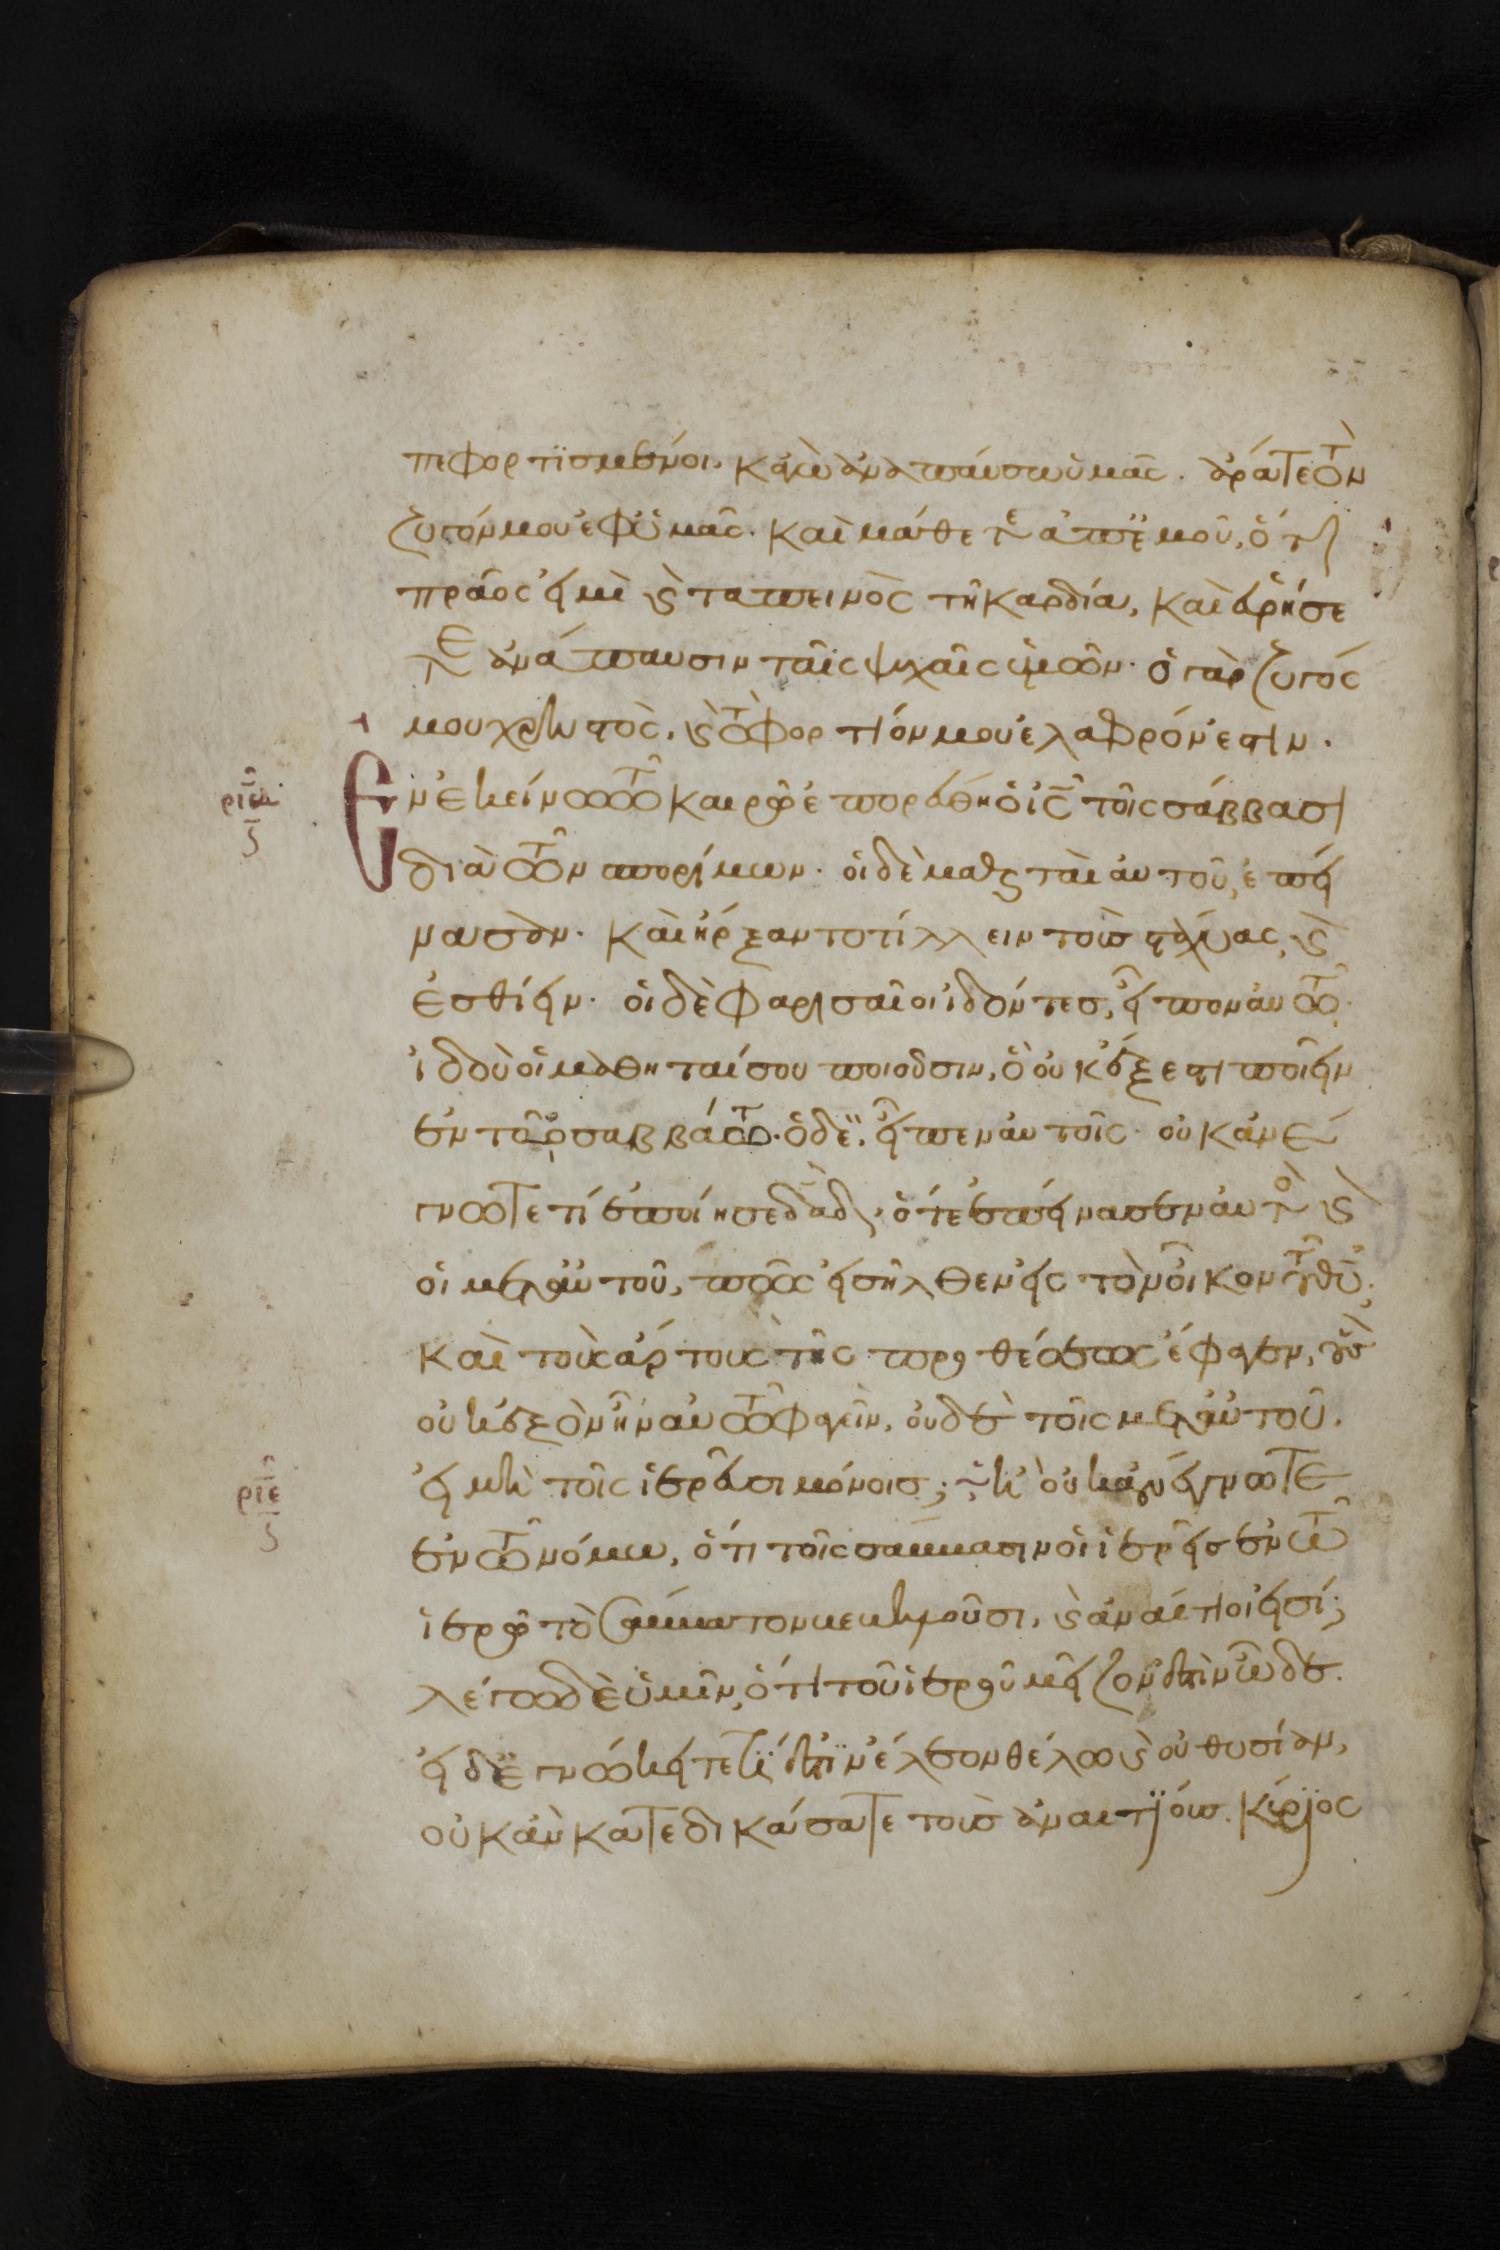 πεφορτϊσμένοι. κἀγὼ ἀναπαύσω ὑμᾶς. ἄρατε τὸν
ζυγόν μου ἐφ ὑμᾶς. καὶ μάθετε ἀπ ἐμοῦ, ὅτι
πρᾶος εἰμὶ ϛ ταπεινὸς τῆ καρδία, καὶ εὑρήσε
τε ἀνάπαυσιν ταῖς ψυχαῖς ὑμῶν. ὁ γὰρ ζυγός
μου χρηστὸς, ϛ τὸ φορτίον μου ἐλαφρόν ἐστιν.
ριδ
ϛ
Ἐν ἐκείνω τῶ καιρῶ ἐπορεύθη ὁ ἰς τοῖς σάββασι
διὰ τῶν σπορίμων. οἱ δὲ μαθηταὶ αὐτοῦ, ἐπεί
νασαν. καὶ ἤρξαντο τίλλειν τοὺς στάχυας, ϛ
ἐσθίειν. οἱ δὲ φαρισαῖοι ἰδόντες, εἶπον αὐτῶ.
ἰδοὺ οἱ μαθηταί σου ποιοῦσιν, ὃ οὐκ ἔξεστι ποιεῖν
ἐν τῶ σαββάτω. ὁ δὲ, εἶπεν αὐτοῖς. οὐκ ἀνέ
γνωτε τί ἐποίησε δαδ, ὅτε ἐπείνασεν αὐτὸς ϛ
οἱ μετ αὐτοῦ, πῶς εἰσῆλθεν εἰς τὸν οἶκον τοῦ θυ.
καὶ τοὺς ἄρτους τῆς προθέσεως ἔφαγεν, οὓς
οὐκ ἐξὸν ἦν αὐτῶ φαγεῖν, οὐδὲ τοῖς μετ αὐτοῦ.
ριε
ϛ
εἰ μὴ τοῖς ἱερεῦσι μόνοις; ἢ οὐκ ἀνέγνωτε
ἐν τῶ νόμω, ὅτι τοῖς σάββασιν οἱ ἱερεῖς ἐν τῶ
ἱερῶ τὸ σάββατον βεβηλοῦσι, ϛ ἀναίτιοί εἰσί;
λέγω δὲ ὑμῖν, ὅτι τοῦ ἱεροῦ μεῖζον ἐστὶν ὧδε.
εἰ δὲ ἐγνώκειτε τί ἐστὶν ἔλεον θέλω ϛ οὐ θυσίαν,
οὐκ ἂν κατεδικάσατε τοὺς ἀναιτΐους. κύρϊος